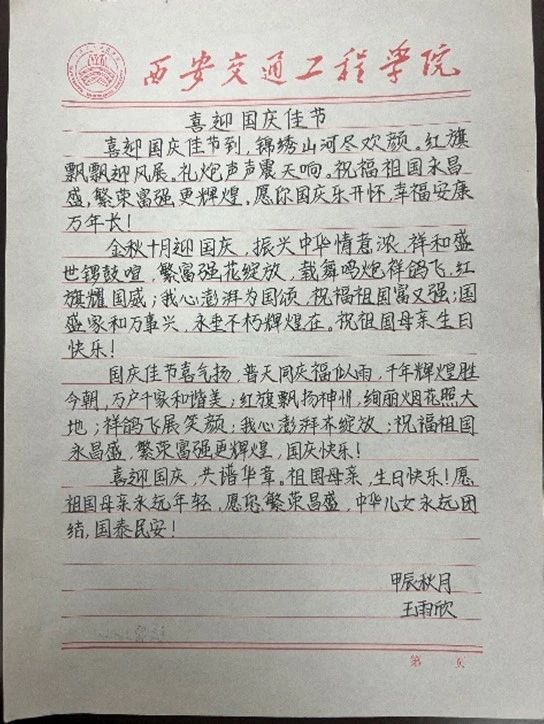 西安交通工程学院
喜迎国庆佳节
喜迎国庆佳节到，锦绣山河尽欢颜。红旗
飘飘迎风展，礼炮声声震天响。祝福祖国永昌
盛，繁荣富强更辉煌。愿你国庆乐开怀，幸福安康
万年长！
金秋十月迎国庆，振兴中华情意浓，祥和盛
世锣鼓喧，繁富强花绽放，载舞鸣炮祥鸽飞，红
旗耀国威；我心澎湃为国颂，祝福祖国富又强；国
盛家和万事兴，永垂不朽辉煌在。祝祖国母亲生日
快乐！
国庆佳节喜气扬，普天同庆福似雨，千年辉煌胜
今朝，万户千家和谐美；红旗飘扬神州，绚丽烟花照大
地；祥鸽飞展笑颜；我心澎湃在绽放；祝福祖国
永昌盛，繁荣富强更辉煌，国庆快乐！
喜迎国庆，共谱华章。祖国母亲，生日快乐！愿
祖国母亲永远年轻，愿您繁荣昌盛，中华儿女永远团
结，国泰民安！
甲辰秋月
王雨欣
第 页